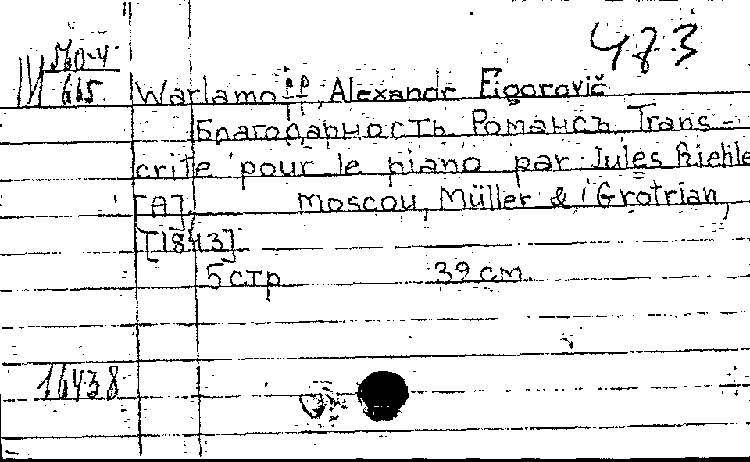 473
М 560-4
615
Warlamoff, Alexandr Eigorovič
Благодарность. Романсъ. Trans-
crite pour le piano par Jules Riehle
[A]. Moscou, Müller & Grotrian,
[1843].
5 стр. 39 см.
16438